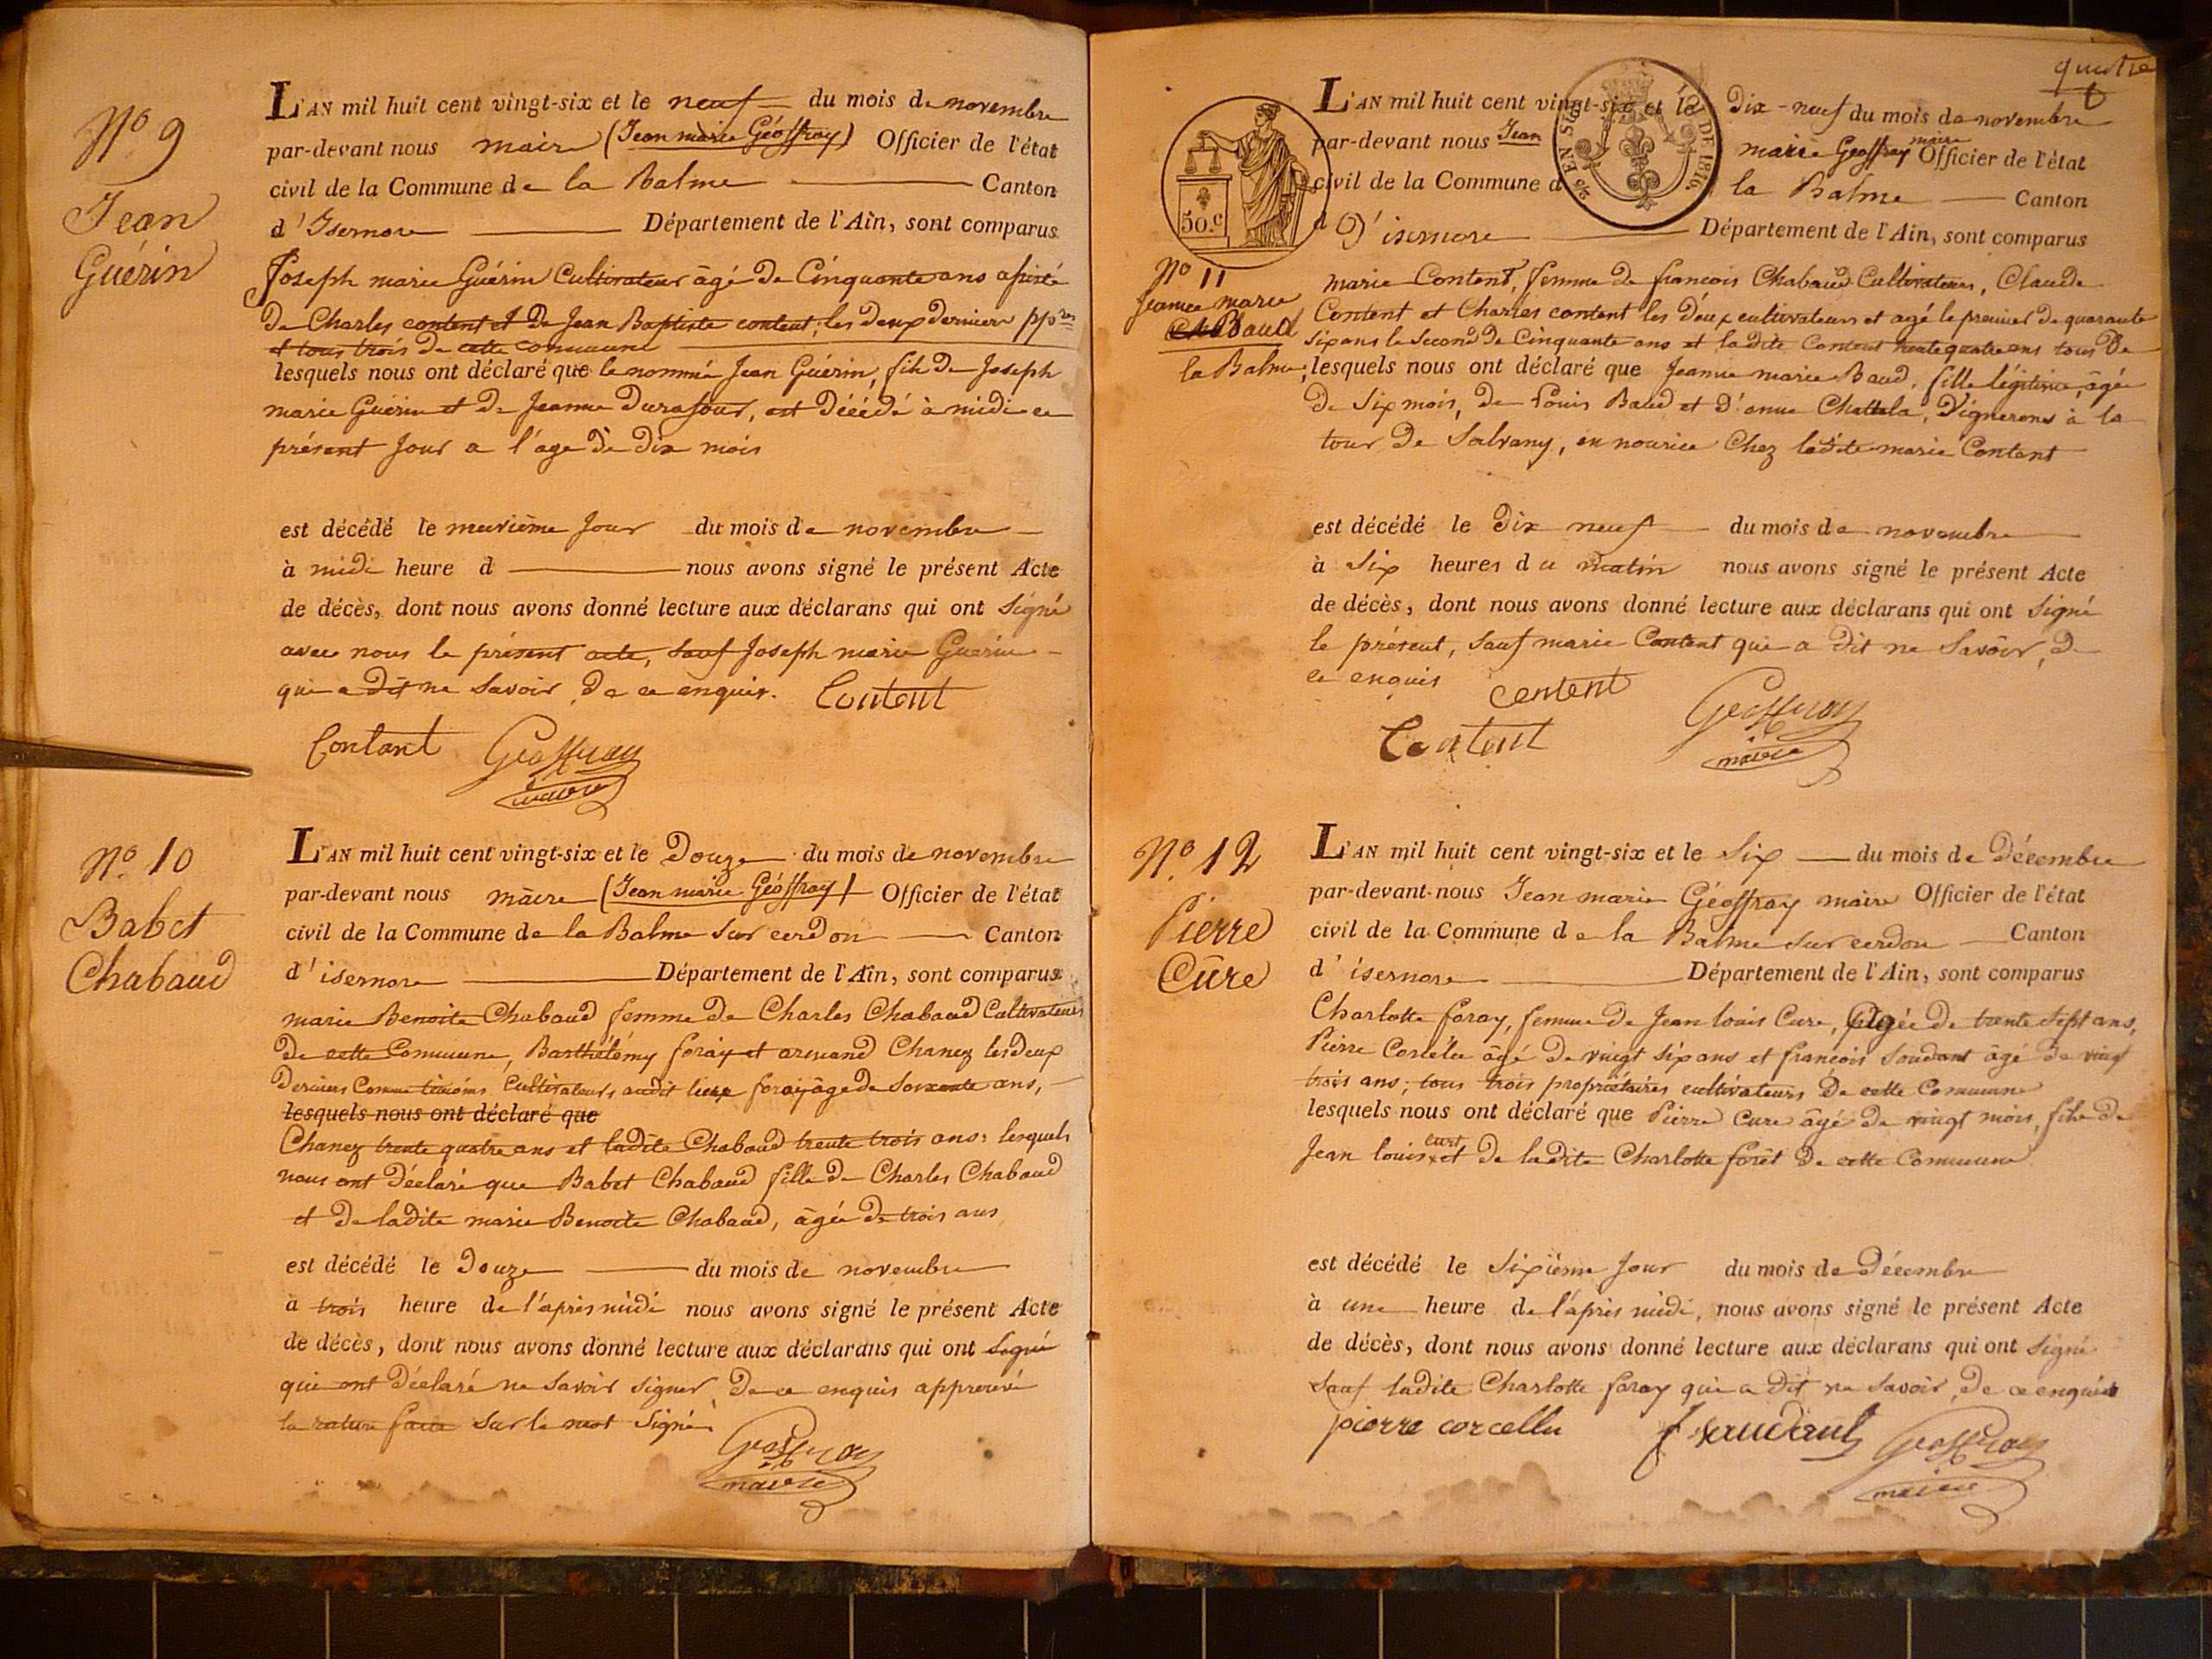 N.º 9
Jean
Guérin
L'AN mil huit cent vingt-six et le neuf du mois de novembre
par-devant nous maire (Jean marie Géoffray) Officier de l'état
civil de la Commune de la Balme Canton
d'Isernore Département de l'Ain, sont comparus
Joseph marie Guérin Cultivateur âgé de Cinquante ans assisté
de Charles content et de Jean Baptiste content, les deux derniers pp.res
et tous trois de cette commune
lesquels nous ont déclaré que le nommé Jean Guérin, fils de Joseph
marie Guérin et de Jeanne Durafour, est décédé à midi ce
présent Jour a l'age de dix mois
est décédé le neuvième Jour du mois de novembre
à midi heure d nous avons signé le présent Acte
de décès, dont nous avons donné lecture aux déclarans qui ont signé
avec nous le présent acte, sauf Joseph marie Guérin
qui a dit ne savoir, de ce enquis. Content
Contant Geoffray
maire
N.º 10
Babet
Chabaud
L'AN mil huit cent vingt-six et le Douze du mois de novembre
par-devant nous maire (Jean marie Géoffray) Officier de l'état
civil de la Commune de la Balme sur cerdon Canton
d'isernore Département de l'Ain, sont comparus
marie Benoite Chabaud femme de Charles Chabaud Cultivateurs
de cette Commune, Barthélémy foray et armand Chanez les deux
derniers Comme témoins Cultivateurs audit lieu foray âgé de soixante ans,
lesquels nous ont déclaré que
Chanez trente quatre ans et ladite Chabaud trente trois ans; lesquels
nous ont déclaré que Babet Chabaud fille de Charles Chabaud
et de ladite marie Benoite Chabaud, âgée de trois ans
est décédé le Douze du mois de novembre
à trois heure de l'après midi nous avons signé le présent Acte
de décès, dont nous avons donné lecture aux déclarans qui ont signé
qui ont déclaré ne savoir signer, de ce enquis approuvé
la rature faite sur le mot signé
Geoffray
maire
quatre
50.c
25 EN SUS
LOI DE 1816
L'AN mil huit cent vingt-six et le Dix-neuf du mois de novembre
par-devant nous Jean marie Geoffray maire Officier de l'état
civil de la Commune d la Balme Canton
d D'isernore Département de l'Ain, sont comparus
N.º 11
Jeanne marie
Baud
la Balme
marie Content, femme de francois Chabaud Cultivateurs, Claude
Content et Charles content les deux cultivateurs et agé le premier de quarante
six ans le second de Cinquante ans et ladite Content trente quatre ans tous de
la Balme; lesquels nous ont déclaré que Jeanne marie Baud, fille légitime, âgée
de six mois, de Louis Baud et d'anne Chattela, Vignerons à la
tour de Salvany, en nourice Chez ladite marie Content
est décédé le Dix neuf du mois de novembre
à six heures du matin nous avons signé le présent Acte
de décès, dont nous avons donné lecture aux déclarans qui ont signé
le présent, sauf marie Content qui a dit ne savoir, de
ce enquis content Geoffray
Content maire
N.º 12
Pierre
Cure
L'AN mil huit cent vingt-six et le six du mois de Décembre
par-devant-nous Jean marie Géoffray maire Officier de l'état
civil de la Commune de la Balme sur cerdon Canton
d'isernore Département de l'Ain, sont comparus
Charlotte foray, femme de Jean louis Cure, âgée de trente sept ans,
Pierre Corcellu âgé de vingt six ans et françois soudant âgé de vingt
trois ans; tous trois propriétaires cultivateurs de cette Commune
lesquels nous ont déclaré que Pierre Cure âgé de vingt mois, fils de
Jean louis cure et de ladite Charlotte forêt de cette Commune
est décédé le sixième Jour du mois de Décembre
à une heure de l'après midi, nous avons signé le présent Acte
de décès, dont nous avons donné lecture aux déclarans qui ont signé
sauf ladite Charlotte foray qui a dit ne savoir, de ce enquis
pierre corcellu f saudant Geoffray
maire